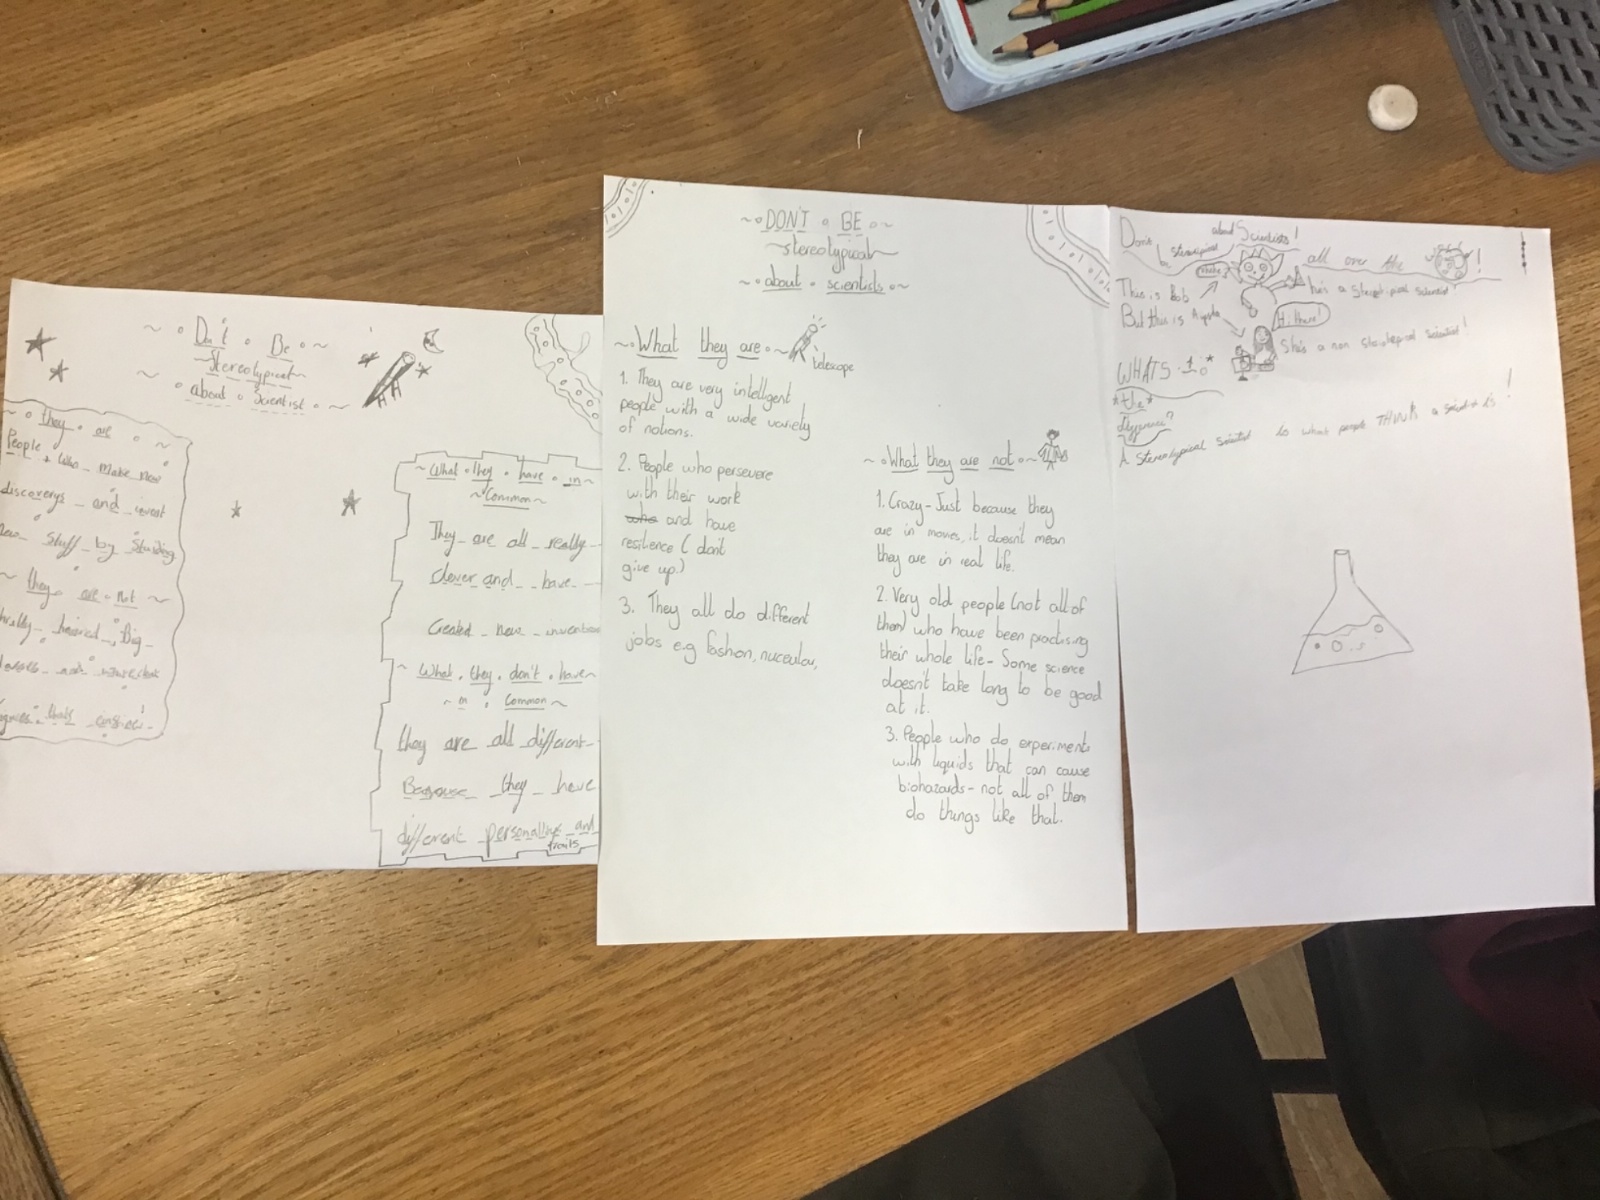 ~ ∘ Don't ∘ Be ∘ ~
~ Stereotypical ~
~ ∘ about ∘ Scientist ∘ ~
~ ∘ they ∘ are ∘ ~
People who make new
discoverys and invent
new stuff by Studing
~ they are not ~
haired, Big
thats
~ What ∘ they ∘ have ∘ in ~
~ Common ~
They are all really
clever and have
Created new invention
~ What ∘ they ∘ don't ∘ have
~ in ∘ Common ~
they are all different
Becouse they have
different personalitys and
traits
~ ∘ DON'T ∘ BE ∘ ~
~ stereotypical ~
~ ∘ about ∘ scientists ∘ ~
~ ∘ What they are ∘ ~
telescope
1. They are very intelligent
people with a wide variety
of notions.
2. People who persevere
with their work
who and have
resilience ( don't
give up.)
3. They all do different
jobs e.g fashon, nuceular,
~ ∘ What they are not ∘ ~
1. Crazy - Just because they
are in movies, it doesn't mean
they are in real life.
2. Very old people (not all of
them) who have been practising
their whole life - Some science
doesn't take long to be good
at it.
3. People who do experiments
with liquids that can cause
biohazards - not all of them
do things like that.
Don't be stereotipical about Scientists!
all over the !
This is Bob
he's a Stereotipical Scientist
But this is
Hi there!
She's a non Scientist!
WHATS
*the*
A Stereotypical Scientist is what people THINK a scientist is!